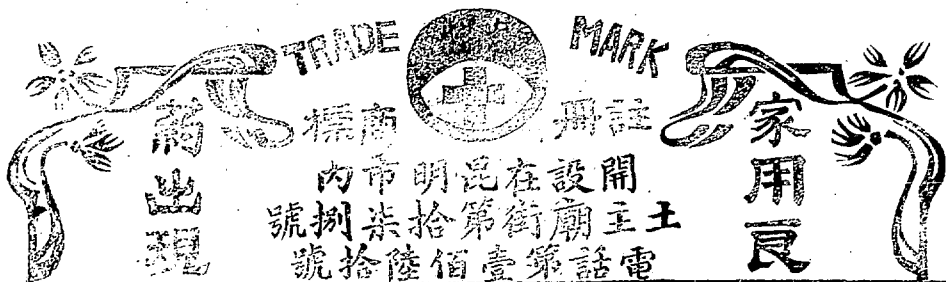 TRADE MARK
註冊商標
家用良
開設在昆明市內
土主廟街第拾柒捌號
電話第壹佰陸拾號
出現